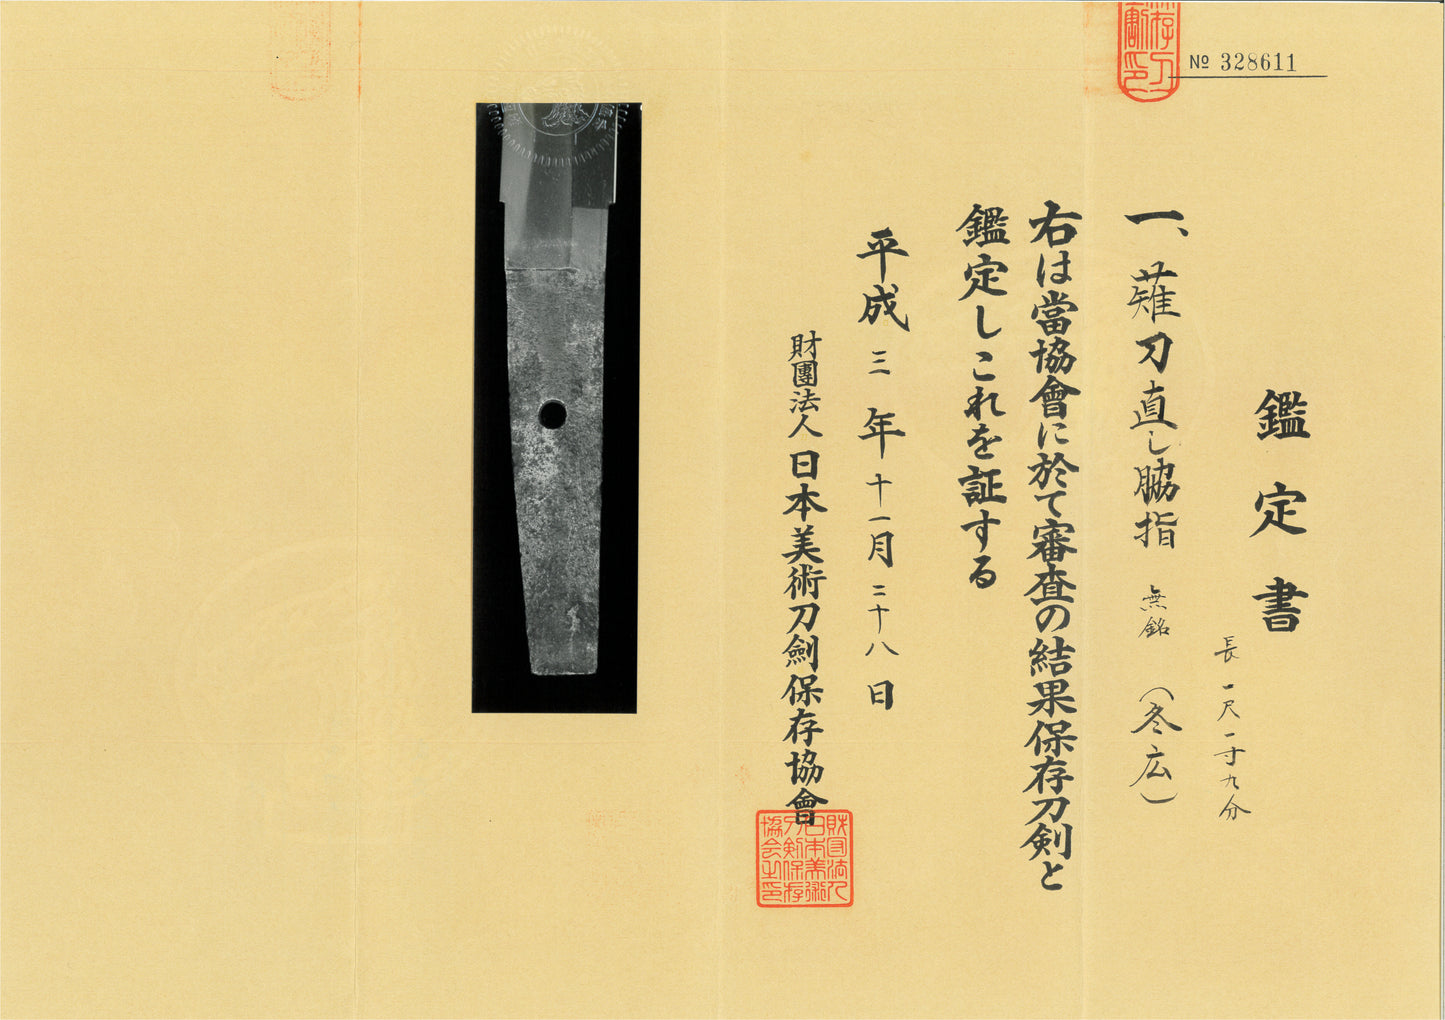 № 328611
鑑定書
長一尺一寸九分
一、薙刀直し脇指 無銘 (冬広)
右は當協會に於て審査の結果保存刀剣と
鑑定しこれを証する
平成三年十一月二十八日
財團法人日本美術刀劍保存協會
財団法人
日本美術
刀剣保存
協会之印